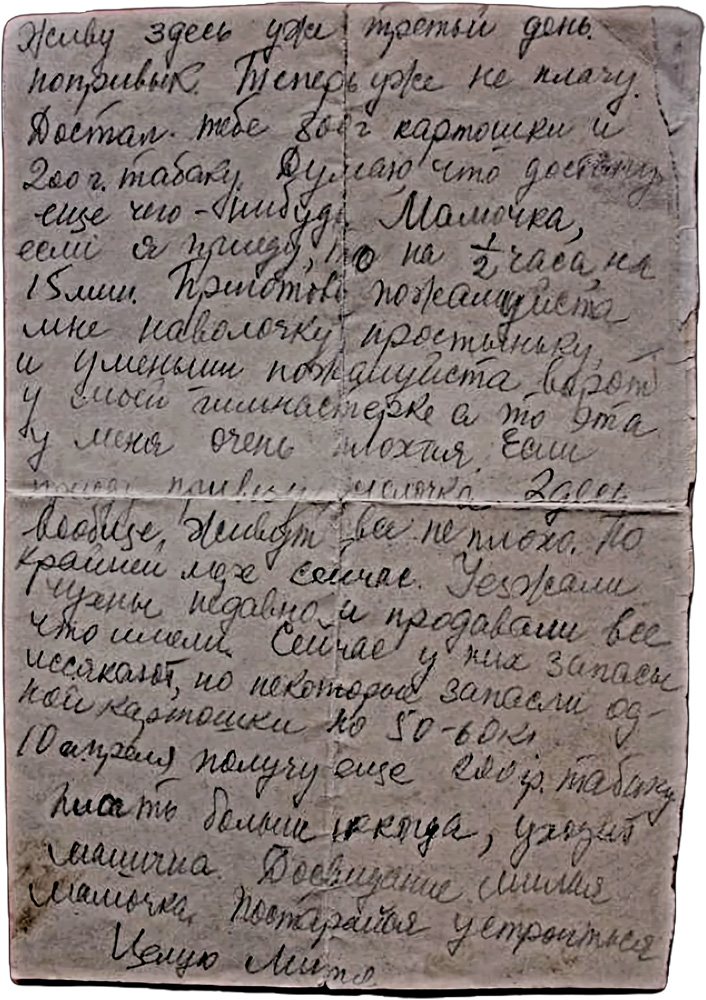 Живу здесь уже третий день.
попривык. Теперь уже не плачу.
Достал тебе 800 г картошки и
200 г. табаку. Думаю, что достану
еще чего-нибудь. Мамочка,
если я приеду, то на 1/2 часа, на
15 мин. Приготовь пожалуйста
мне наволочку простыньку,
и уменьши пожалуйста ворот
у моей гимнастерке а то эта
у меня очень плохая. Если
приеду привезу молочка. Здесь
вообще, живут все не плохо. По
крайней мере сейчас. Уезжали
чухны недавно и продавали все
что имели. Сейчас у них запасы
иссякают, но некоторые запасли од-
ной картошки по 50-60 кг
10 апреля получу еще 200 гр. табаку
Писать больше некогда, уходит
машина. Досвидание милая
мамочка. Постарайся устроиться
Целую Митя